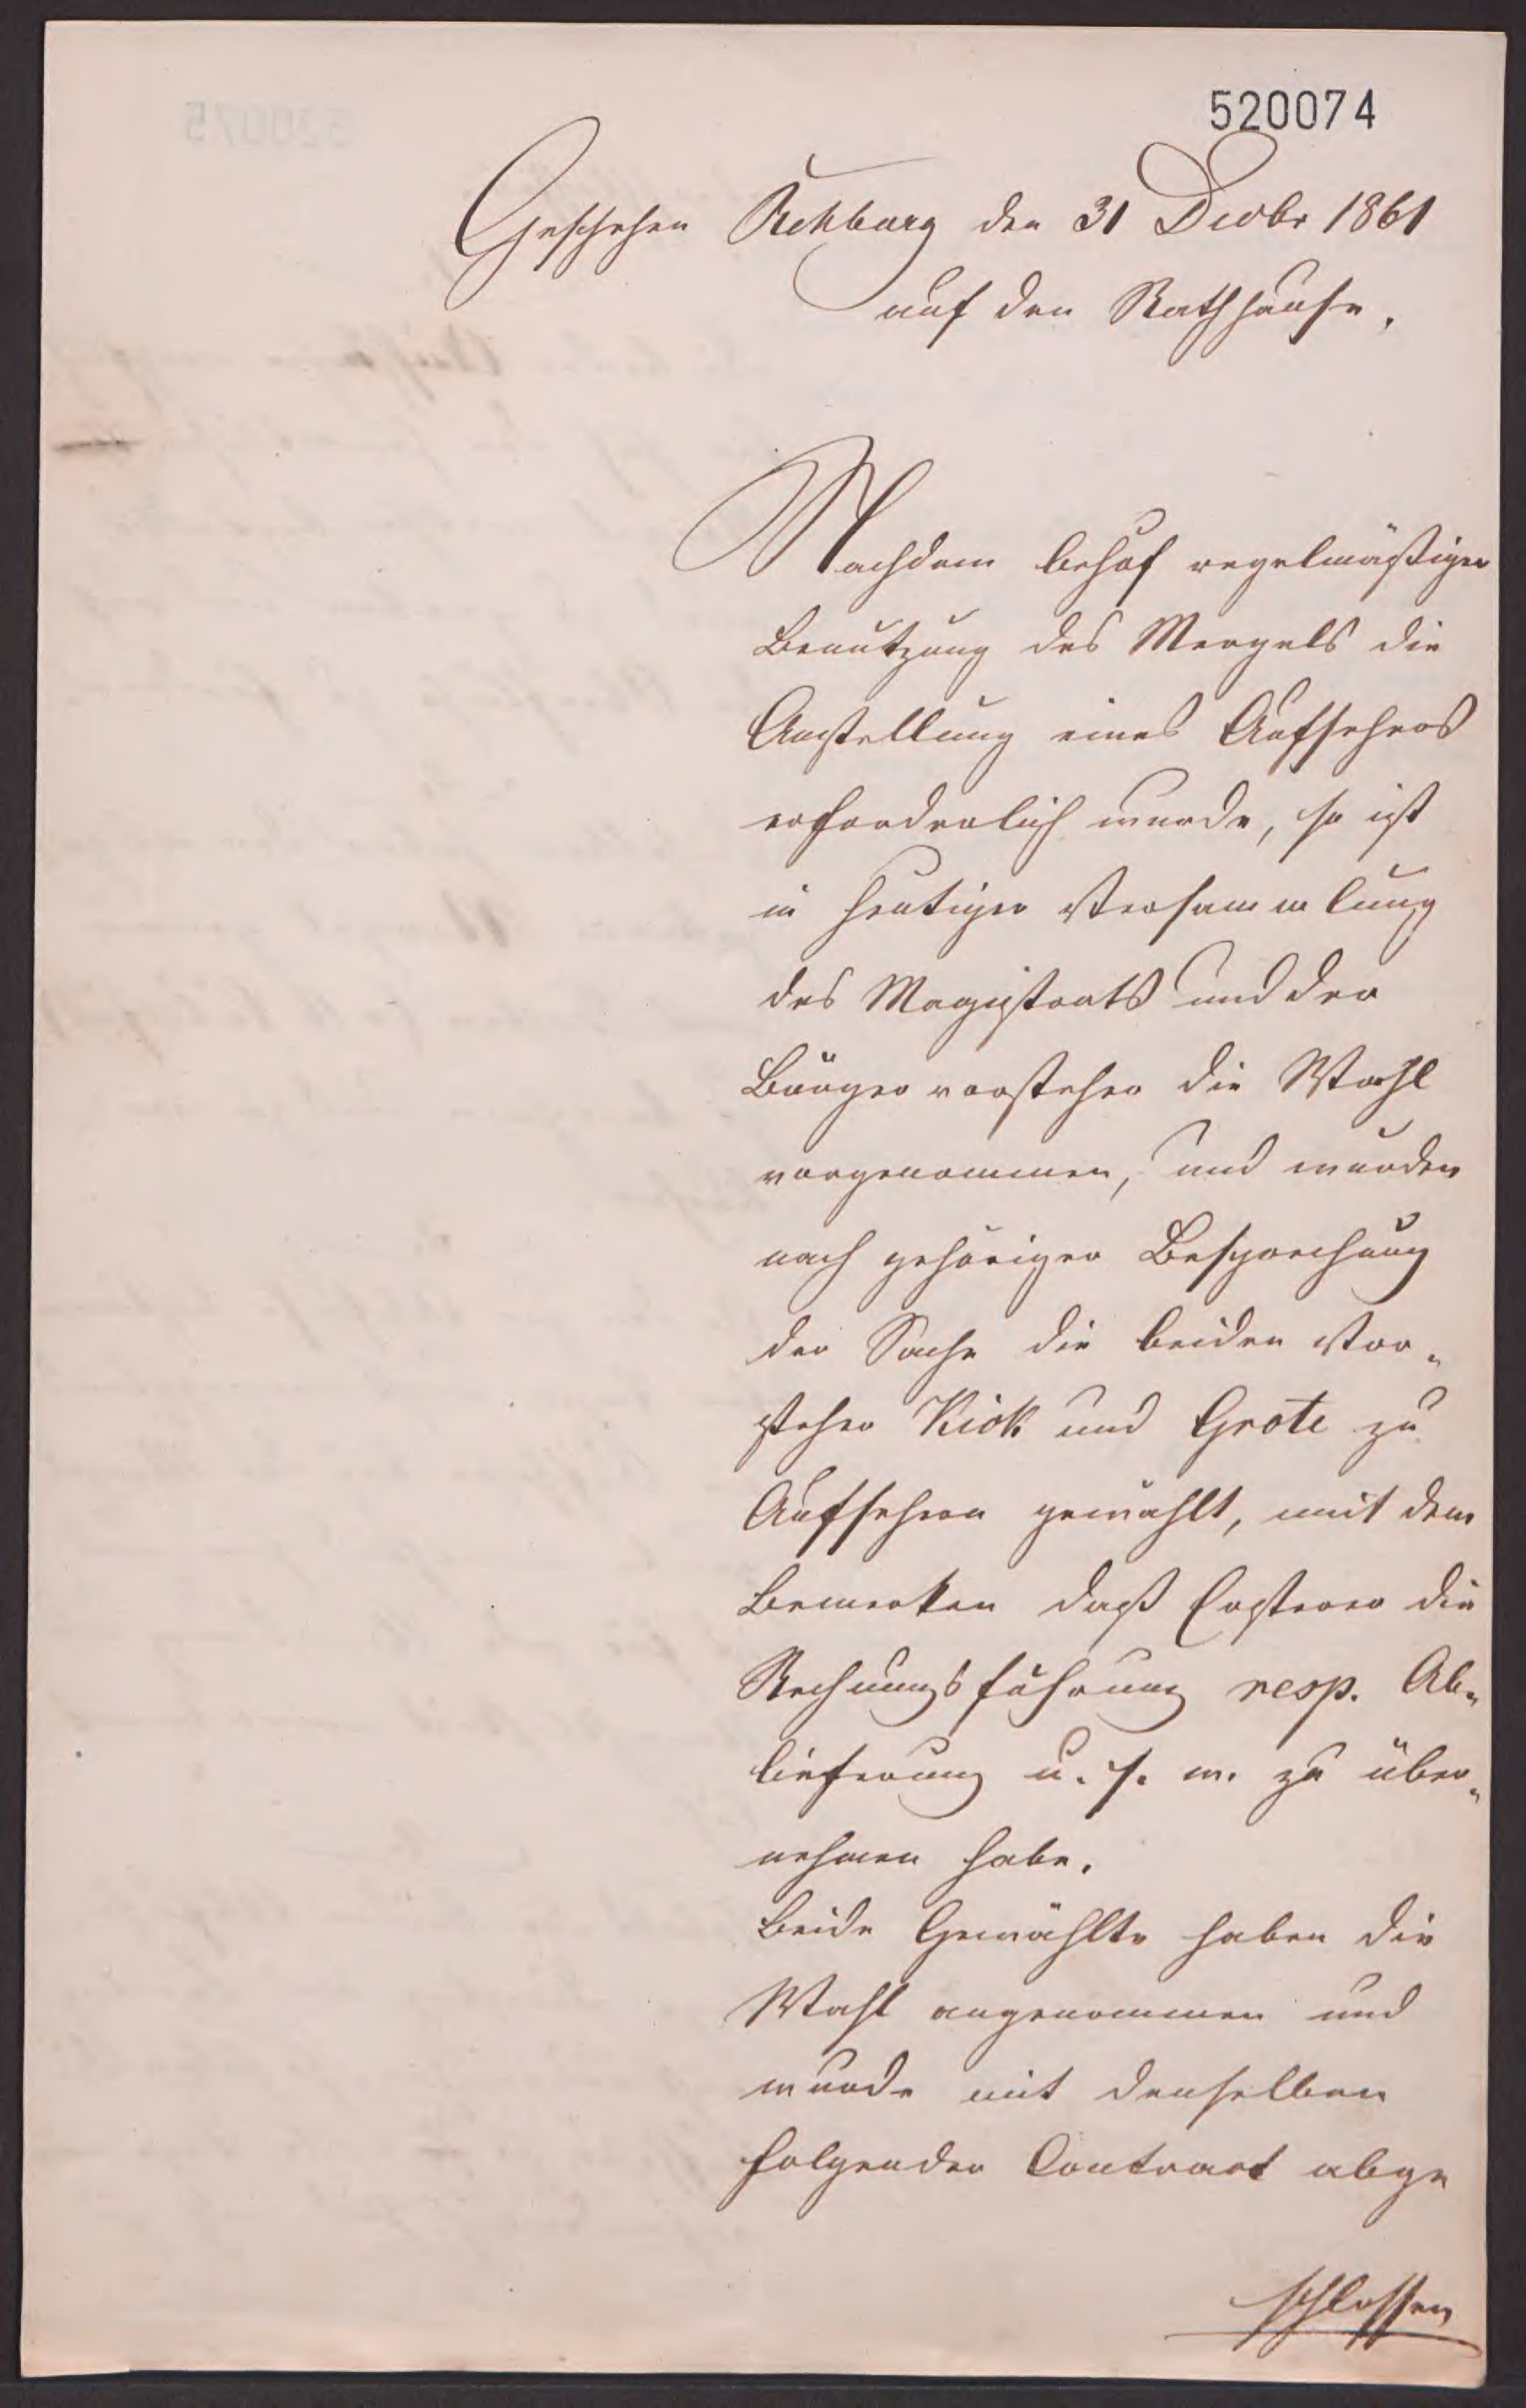 520074
Geschehen Rehburg den 31 Decbr 1861
auf den Rathhause.
Nachdem behuf regelmäßiger
Benutzung des Mergels die
Anstellung eines Aufsehers
erforderlich wurde, so ist
in heutiger Versammlung
des Magistrats und der
Bürgervorsteher die Wahl
vorgenommen, und wurden
nach gehöriger Besprechung
der Sache die beiden Vor-
steher Kiok und Grote zu
Aufsehern gewählt, mit dem
Bemerken daß Ersterer die
Rechnungsführung resp. Ab-
lieferung u. s. w. zu über-
nehmen habe.
Beide Gewählte haben die
Wahl angenommen und
wurde mit denselben
folgender Contract abge
schlossen